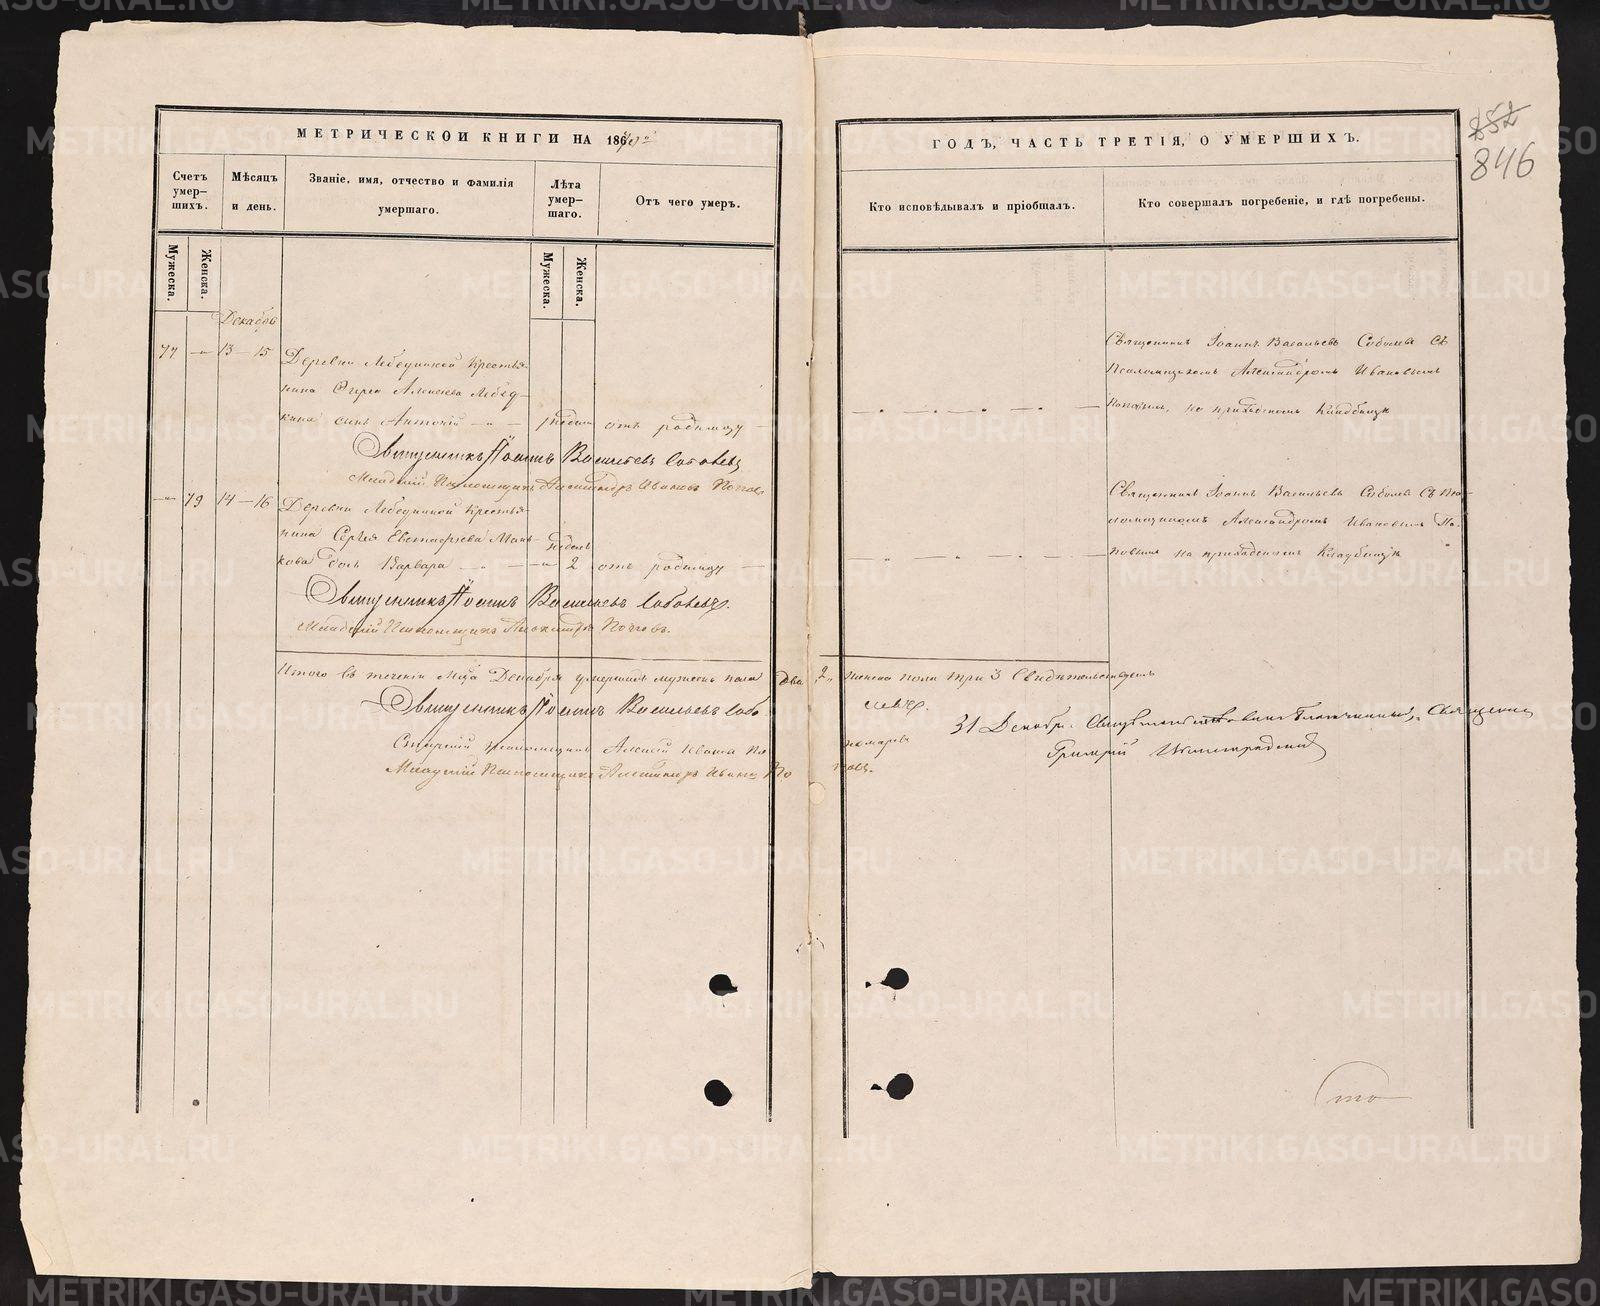 МЕТРИЧЕСКОЙ КНИГИ НА 186
ГОДЪ, ЧАСТЬ ТРЕТІЯ, О УМЕРШИХЪ.
852
846
Счетъ умер-шихъ.
Мѣсяцъ и день.
Званіе, имя, отчество и фамилія умершаго.
Лѣта умер-шаго.
Отъ чего умеръ.
Кто исповѣдывалъ и пріобщалъ.
Кто совершалъ погребеніе, и гдѣ погребены.
Мужеска.
Женска.
Мужеска.
Женска.
Декабрь
77 13-15
Деревни Лебедкиной Крестья-
нина Алексѣева Лебед-
кина сынъ Антоній
отъ родимцу
Священникъ Іоаннъ Васильевъ Соболевъ
Младшій Псаломщикъ Александръ Ивановъ Поповъ
Священникъ Іоаннъ Васильевъ Соболевъ съ
Псаломщикомъ Александромъ Ивановымъ
Поповымъ, на приходскомъ Кладбищѣ
79 14-16
Деревни Лебедкиной Крестья-
нина Сергѣя
дочь Варвара
недѣль
2
отъ родимцу
Священникъ Іоаннъ Васильевъ Соболевъ.
Младшій Псаломщикъ Александръ Поповъ.
Священникъ Іоаннъ Васильевъ Соболевъ съ Пса-
ломщикомъ Александромъ Ивановымъ По-
повымъ на приходскомъ Кладбищѣ
Итого въ теченіи Мца Декабря умершихъ мужеска пола два 2, женска пола три 3 Свидѣтельствуемъ
Священникъ Іоаннъ Васильевъ Собо-
левъ.
31 Декабр. Благочинный, Священникъ
Григорій
Старшій Псаломщикъ Алексѣй Ивановъ По-
номаревъ
Младшій Псаломщикъ Александръ Ивановъ По-
повъ.
METRIKI.GASO-URAL.RU